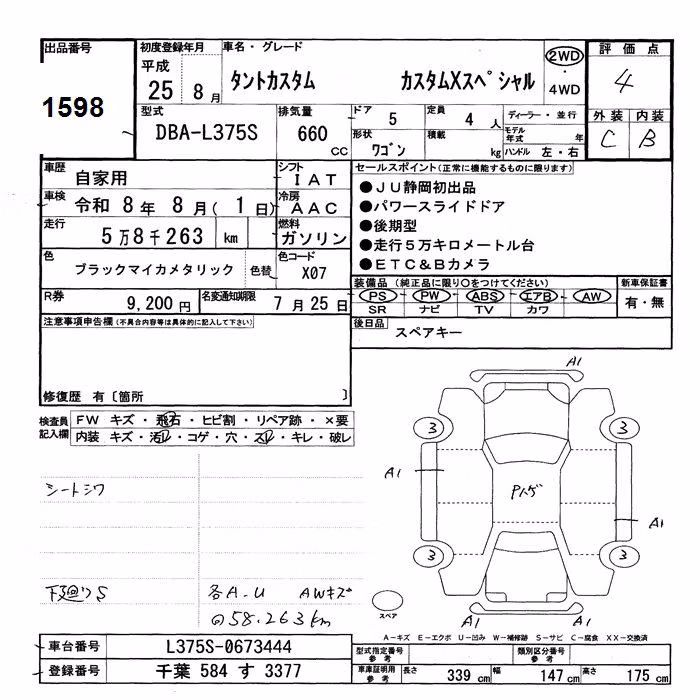 出品番号
1598
初度登録年月
平成
25 8 月
車名・グレード
タントカスタム カスタムXスペシャル
2WD
・
4WD
評価点
4
外装 内装
C B
型式
DBA-L375S
排気量
660
CC
ドア
5
定員
4 人
形状
ワゴン
積載
kg
ディーラー・並行
モデル
年式 年
ハンドル 左・右
車歴
自家用
シフト
I A T
車検
令和 8 年 8 月( 1 日)
冷房
A A C
走行
5 万 8 千 263 km
燃料
ガソリン
色
ブラックマイカメタリック
色替
色コード
X07
R券
9,200 円
名変通知期限
7 月 25 日
セールスポイント(正常に機能するものに限ります)
●JU静岡初出品
●パワースライドドア
●後期型
●走行5万キロメートル台
●ETC&Bカメラ
装備品 (純正品に限り○をつけてください)
PS PW ABS エアB AW
SR ナビ TV カワ
新車保証書
有・無
後日品
スペアキー
注意事項申告欄(不具合内容等は具体的に記入して下さい)
修復歴 有〔箇所 〕
検査員
記入欄
FW キズ・飛石・ヒビ割・リペア跡・×要
内装 キズ・汚レ・コゲ・穴・スレ・キレ・破レ
シートシワ
下廻りS
各A.U AWキズ
58.263km
A1
3
3
A1
A1
3
3
A1
A1
スペア
A-キズ E-エクボ U-凹み W-補修跡 S-サビ C-腐食 XX-交換済
車台番号
L375S-0673444
登録番号
千葉 584 す 3377
型式指定番号
参考
類別区分番号
参考
車庫証明用
参考
長さ 339 cm 幅 147 cm 高さ 175 cm